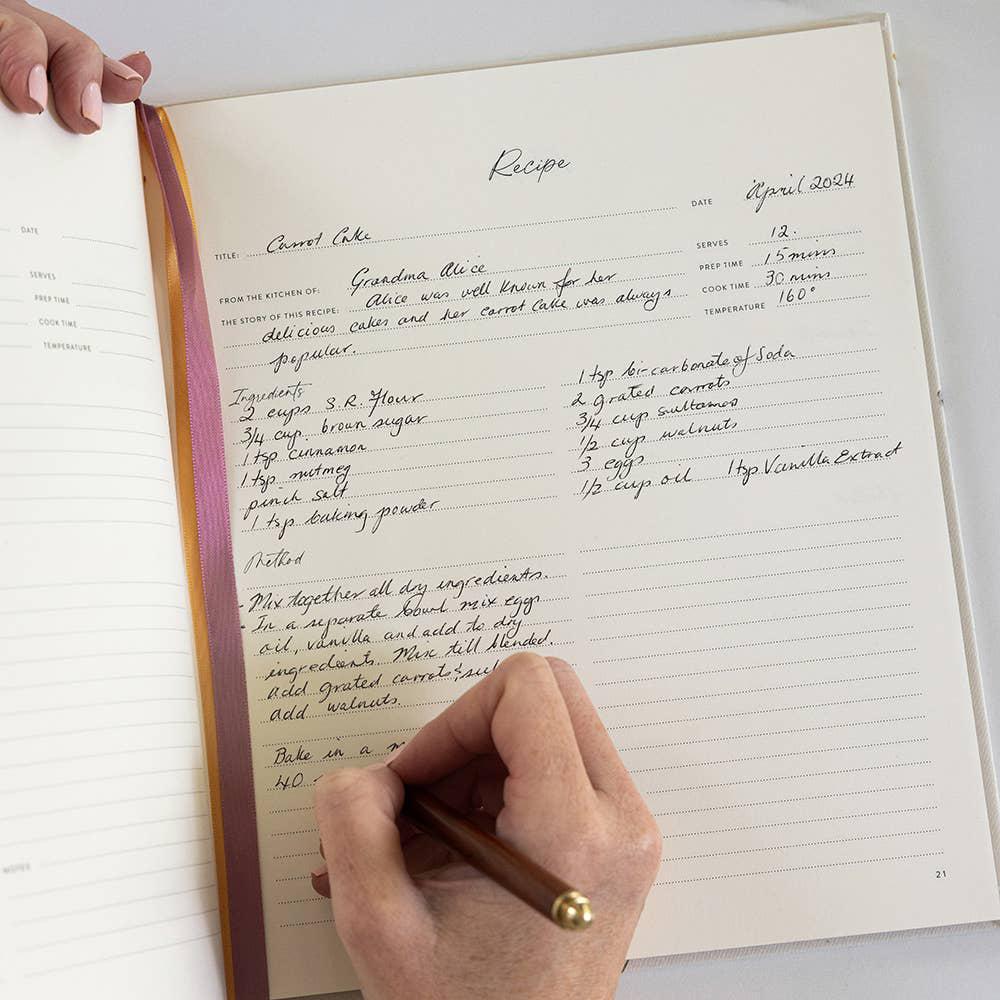 DATE
SERVES
PREP TIME
COOK TIME
TEMPERATURE
NOTES
Recipe
DATE April 2024
TITLE: Carrot Cake
SERVES 12.
FROM THE KITCHEN OF: Grandma Alice
PREP TIME 15 mins
THE STORY OF THIS RECIPE: Alice was well known for her
COOK TIME 30 mins
delicious cakes and her carrot cake was always
TEMPERATURE 160°
popular.
Ingredients
2 cups S.R. Flour
3/4 cup. brown sugar
1 tsp cinnamon
1 tsp nutmeg
pinch salt
1 tsp baking powder
1 tsp bi-carbonate of Soda
2 grated carrots
3/4 cup sultanas
1/2 cup walnuts
3 eggs
1/2 cup oil 1 tsp Vanilla Extract
Method
- Mix together all dry ingredients.
- In a separate bowl mix eggs
oil, vanilla and add to dry
ingredients. Mix till blended.
add grated carrots &
add walnuts.
Bake in a
40
21